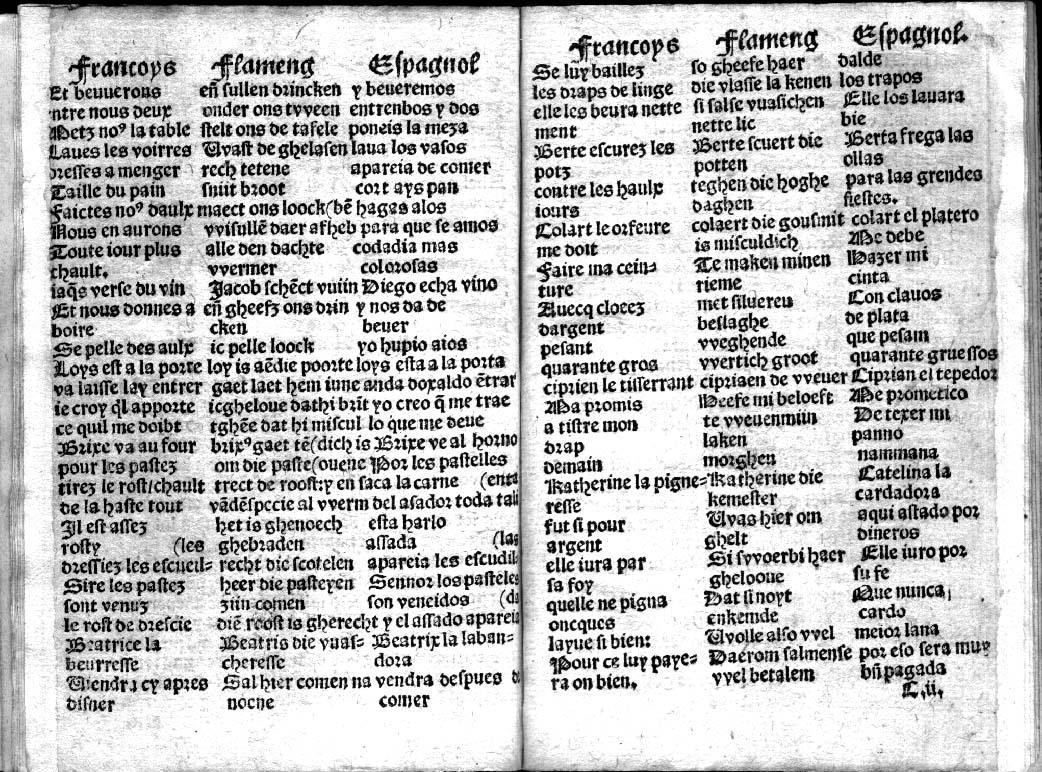 Francoys Flameng Espagnol
Et beuuerons eñ sullen drincken y beueremos
ntre nous deux onder ons tvveen entrenbos y dos
Metz noꝰ la table stelt ons de tafele poneis la meza
Laues les voirres Wast de ghelasen laua los vasos
dresses a menger rech tetene apareia de comer
Taille du pain snijt broot cort ays pan
Faictes noꝰ daulx maect ons loock (bē hagas alos
Nous en aurons vvisullē daer afheb para que se amos
Toute iour plus alle den dachte codadia mas
chault. vvermer colorosas
iaqs verse du vin Jacob schēct vuiin Diego echa vino
Et nous donnes a eñ gheefz ons drin y nos da de
boire cken beuer
Se pelle des aulx ic pelle loock yo hupio aios
Loys est a la porte loy is aēdie poorte loys esta a la porta
va laisse lay entrer gaet laet hem inne anda doxaldo ētrar
ie croy ql apporte icgheloue dathi brīt yo creo q̄ me trae
ce quil me doibt tghēe dat hi miscul lo que me deue
Brixe va au four brixꝰ gaet tē (dich is Brixe ve al horno
pour les pastez om die paste (ouene Por les pastelles
tirez le rost/chault trect de roost:y en saca la carne (enta
de la haste tout vādēspecie al vverm del asador toda tali
Jl est assez het is ghenoech esta harlo
rosty (les ghebraden assada (las
dressiez les escueil- recht die scotelen apareia les escudil
Sire les pastez heer die pasteyen Sennor los pasteles
sont venuz ziin comen son vencidos (da
le rost de drescie diē roost is gherecht y el assado aparei
Beatrice la Beatris die vuas- Beatrix la laban-
beurresse cheresse dora
Wendra cy apres Sal hier comen na vendra despues d
disner nocne comer
Francoys Flameng Espagnol.
Se luy baillez so gheefe haer dalde
les draps de linge die vlasse la kenen los trapos
elle les beura nette si salse vuasichen Elle los lauara
ment nette lic bie
Berte escurez les Berte scuert die Berta frega las
potz potten ollas
contre les haulx teghen die hoghe para las grendes
iours daghen fiestes.
Colart le orfeure colaert die gousmit colart el platero
me doit is misculdich Me debe
Faire ma cein- Te maken minen Hazer mi
ture rieme cinta
Auecq cloeez met siluereu Con clauos
dargent beslaghe de plata
pesant vveghende que pesam
quarante gros vvertich groot quarante gruessos
ciprien le tisserrant cipriaen de vveuer Ciprian el tepedor
Ma promis Heefe mi beloeft Me prometico
a tistre mon te vveuenmiin De texer mi
drap laken panno
demain morghen nammana
Katherine la pigne- Katherine die Catelina la
resse kemester cardadora
fut si pour Was hier om aqui astado por
argent ghelt dineros
elle iura par Si svvoerbi haer Elle iuro por
sa foy gheloove su fe
quelle ne pigna Dat si noyt Que nunca,
oncques enkemde cardo
layne si bien: Wolle also vvel meior lana
Pour ce luy paye- Daerom salmense por eso sera muy
ra on bien. vvel betalem bñ pagada
C.ii.